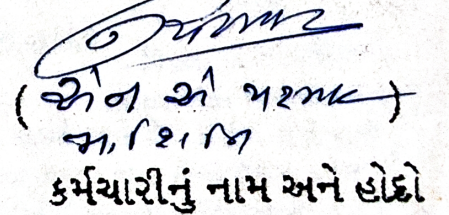 (એન એ પરમાર)
મા. શિ. નિ
કર્મચારીનું નામ અને હોદ્દો